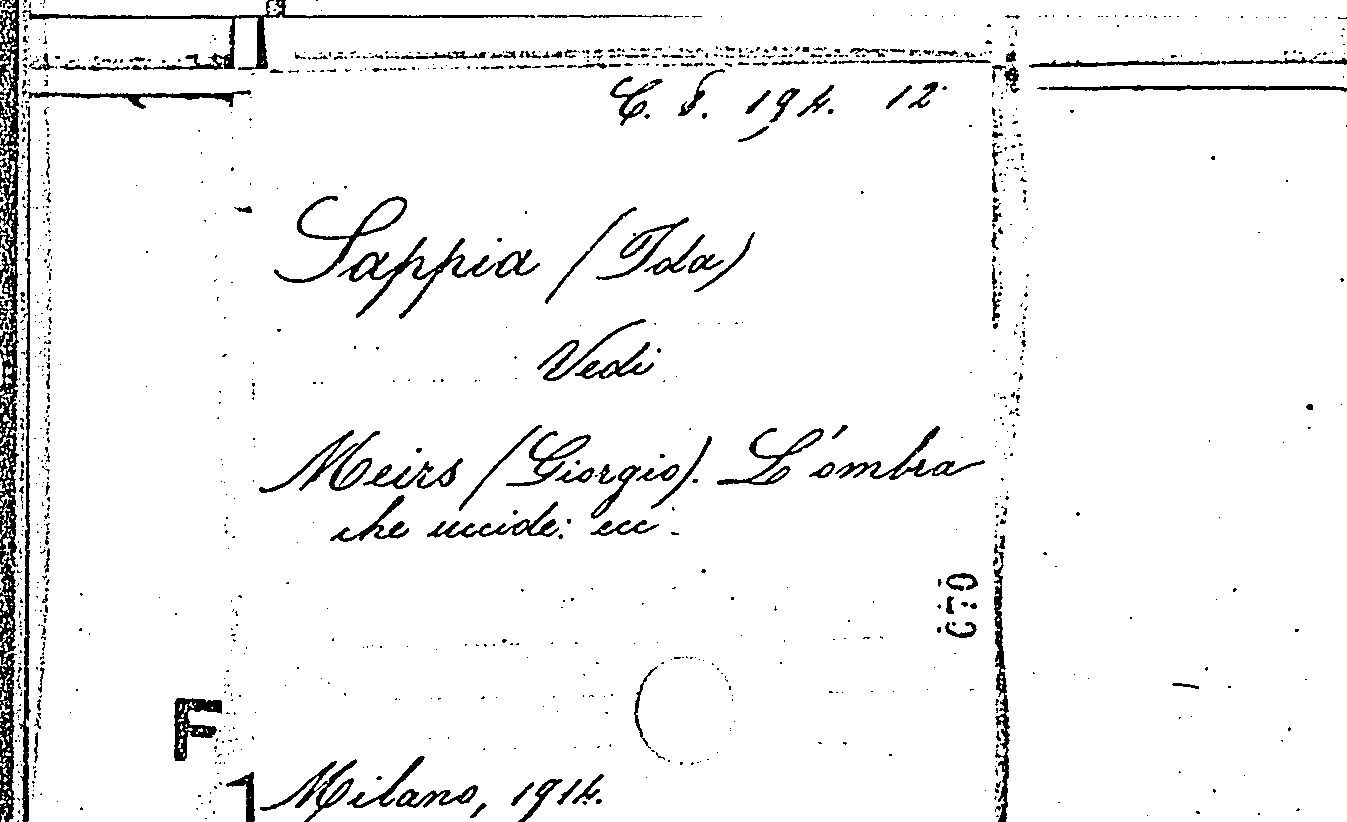 C. F. 194. 12
Sappia (Ida)
Vedi
Meirs (Giorgio). L'ombra
che uccide: ecc.
070
F
1
Milano, 1914.